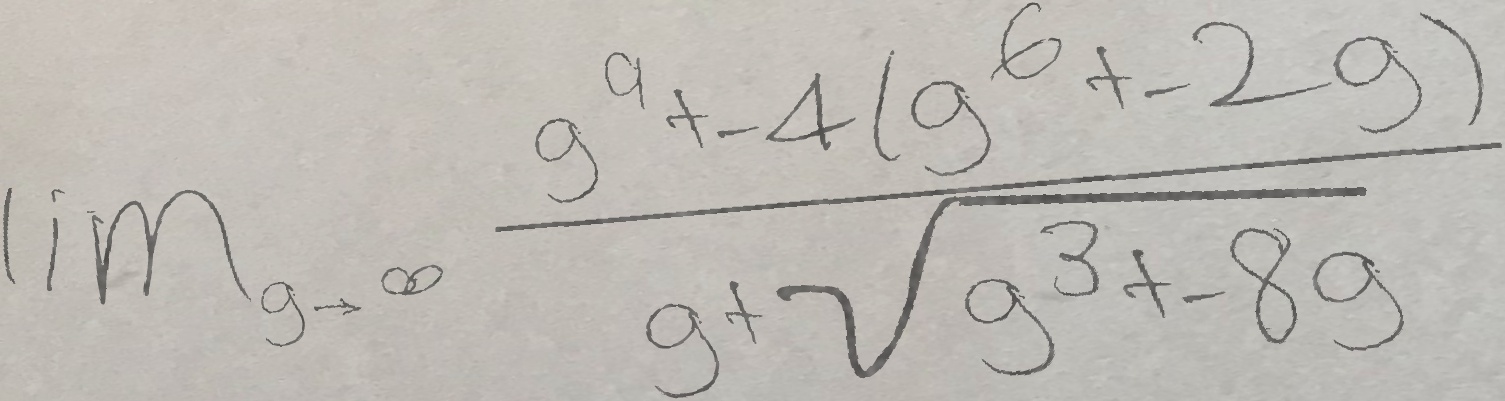 \lim_{g \to \infty} \frac{g^9 + -4(g^6 + -2g)}{g + \sqrt{g^3 + -8g}}